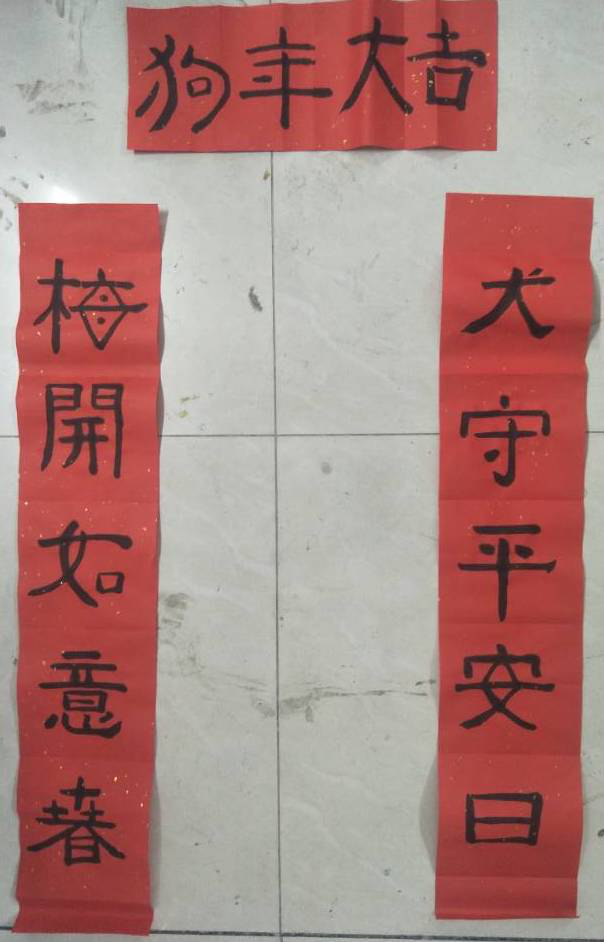 狗年大吉
犬守平安日
梅開如意春